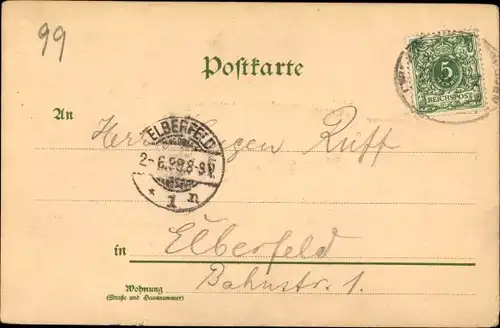 99
Postkarte
5
REICHSPOST
An
Herrn Eugen Ruff
ELBERFELD
2-6.99.8-9V.
* 1 n
in
Elberfeld
Bahnstr. 1.
Wohnung
(Straße und Hausnummer)